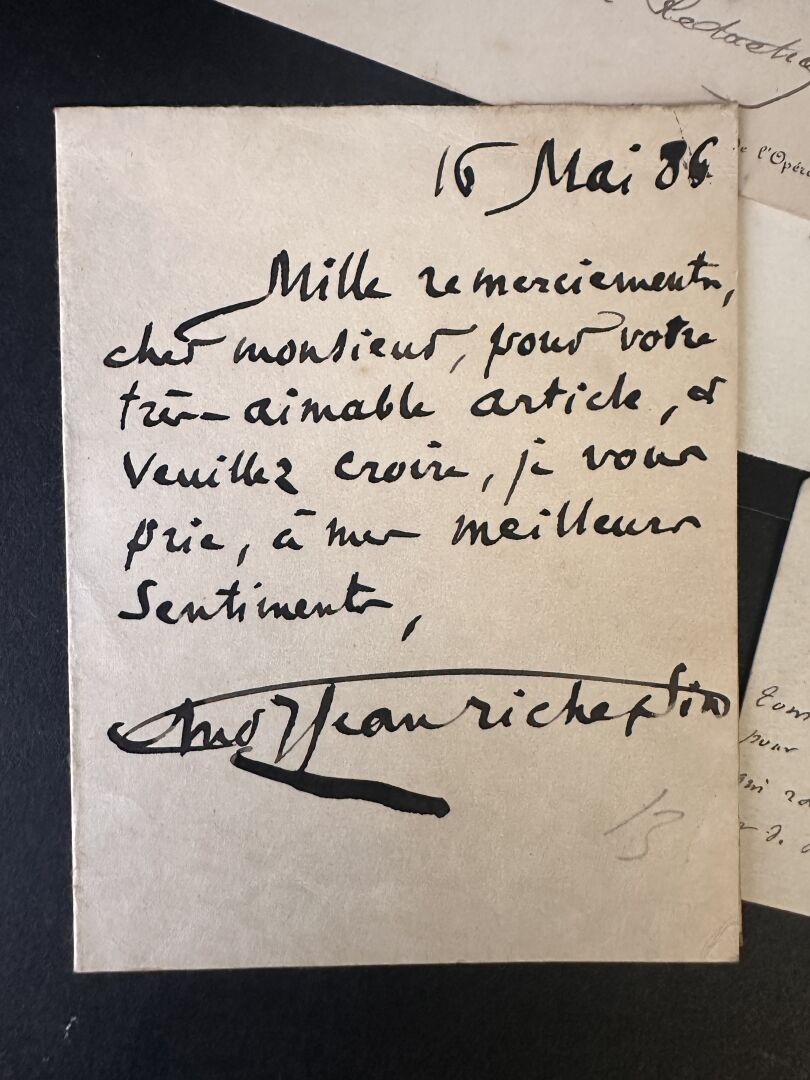 Rédaction
de l'Opéra
16 Mai 86
Mille remerciements,
cher monsieur, pour votre
très aimable article, &
Veuillez croire, je vous
prie, à mes meilleurs
Sentiments,
Jean richepin
13
pour